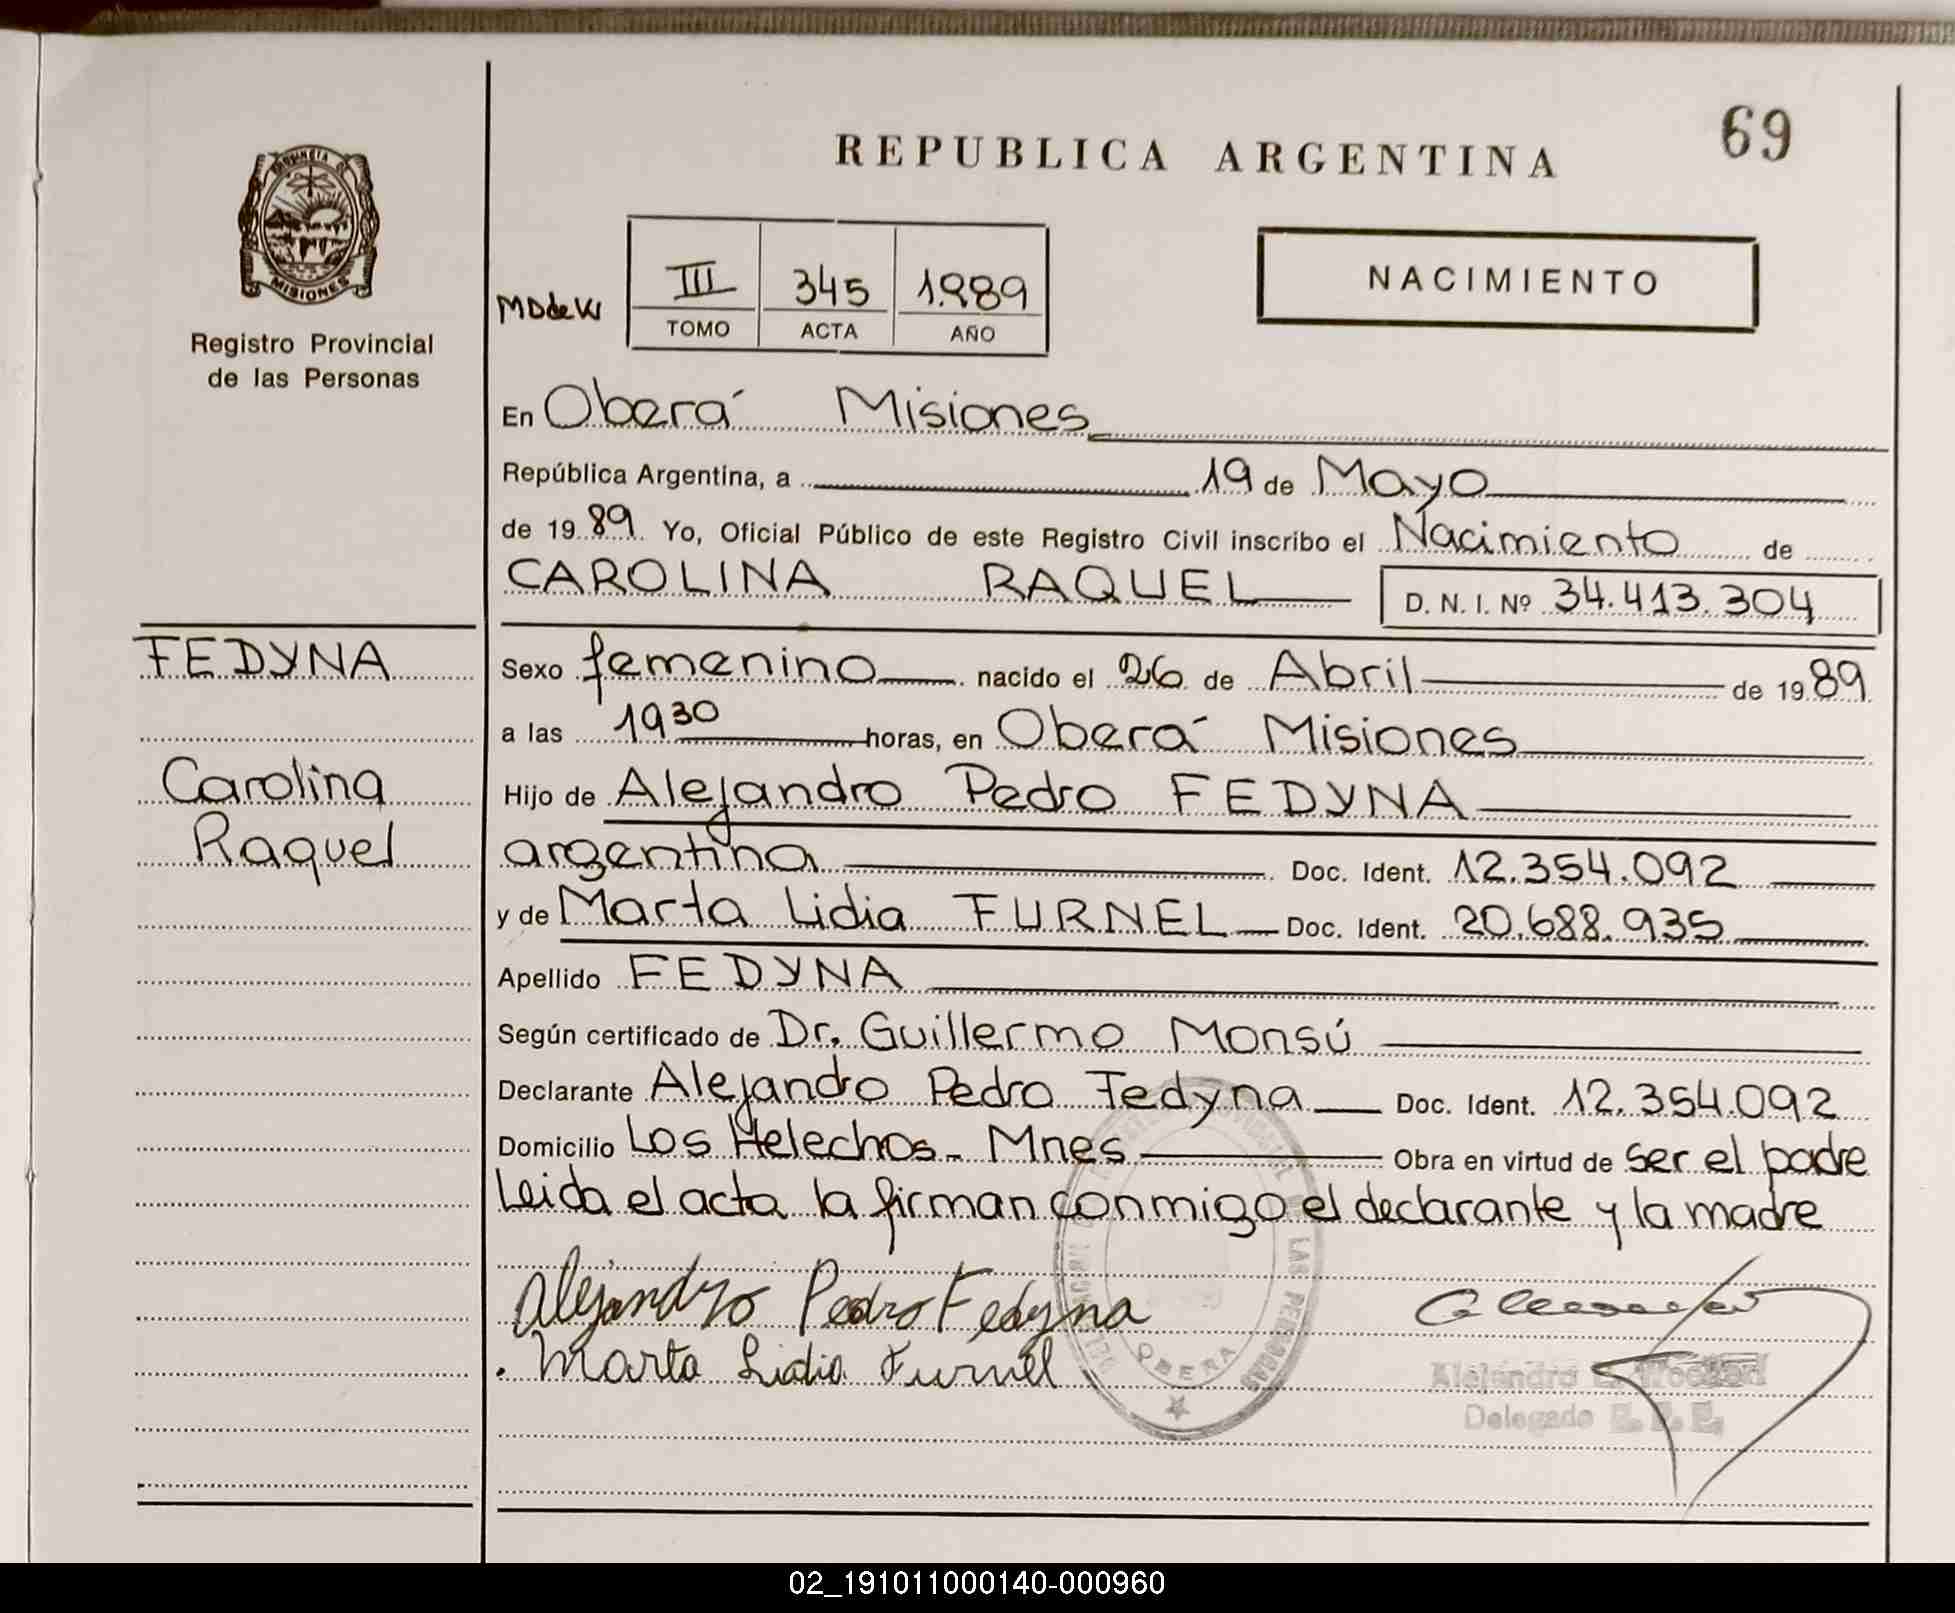 69
REPUBLICA ARGENTINA
PROVINCIA DE
MISIONES
Registro Provincial
de las Personas
III 345 1.989
TOMO ACTA AÑO
NACIMIENTO
En Oberá Misiones
República Argentina, a 19 de Mayo
de 1989 Yo, Oficial Público de este Registro Civil inscribo el Nacimiento de
CAROLINA RAQUEL D. N. I. Nº 34.413.304
FEDYNA
Carolina
Raquel
Sexo femenino nacido el 26 de Abril de 1989
a las 19 30 horas, en Oberá Misiones
Hijo de Alejandro Pedro FEDYNA
argentina Doc. Ident. 12.354.092
y de Marta Lidia FURNEL Doc. Ident. 20.688.935
Apellido FEDYNA
Según certificado de Dr. Guillermo Monsú
Declarante Alejandro Pedro Fedyna Doc. Ident. 12.354.092
Domicilio Los Helechos - Mnes Obra en virtud de ser el padre
Leida el acta la firman conmigo el declarante y la madre
Alejandro Pedro Fedyna
Marta Lidia Furnel
LAS PERSONAS
OBERA
Alejandro
Delegado
02_191011000140-000960